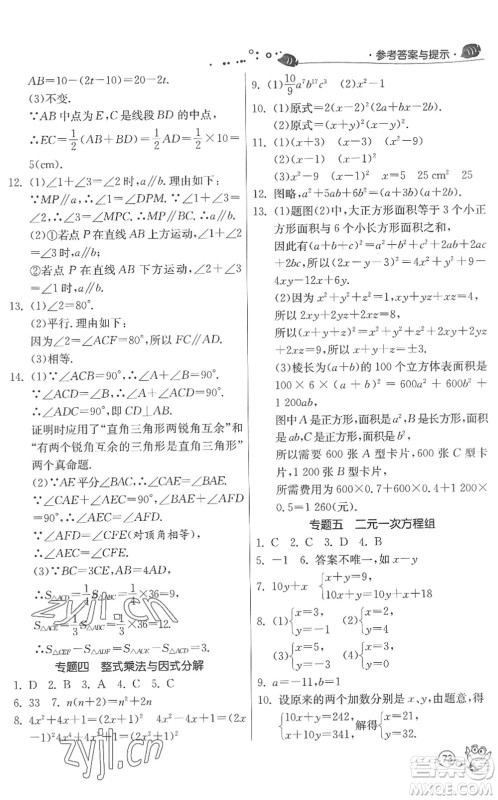 ·参考答案与提示·
AB=10-(2t-10)=20-2t.
(3)不变.
∵AB中点为E,C是线段BD的中点,
∴EC=1/2(AB+BD)=1/2AD=1/2×10=
5(cm).
12. (1)∠1+∠3=∠2时,a∥b.理由如下:
∵MP∥a,∴∠1=∠DPM.
∵∠1+∠3=∠2,∴∠2=∠DPM+∠3,
∴∠3=∠MPC.∴MP∥BC.∴a∥b.
(2)①若点P在直线AB上方运动,
则∠3+∠2=∠1时,a∥b;
②若点P在直线AB下方运动,
则∠1+∠2=∠3时,a∥b.
13. (1)∠2=80°.
(2)平行.理由如下:
因为∠2=∠CFE=80°,所以FC∥AD.
(3)相等.
14. (1)∵∠ACB=90°,∴∠A+∠B=90°.
∵∠ACD=∠B,∴∠A+∠ACD=90°.
∴∠ADC=90°,即CD⊥AB.
证明时应用了“直角三角形两锐角互余”和
“有两个锐角互余的三角形是直角三角形”
两个真命题.
(2)∵AE平分∠BAC,∴∠CAE=∠BAE.
∵∠CAE+∠CEF=∠BAE+∠AFD=
90°,∴∠CEF=∠AFD.∵∠AFD=
∠CFE,∴∠CEF=∠CFE.
(3)∵BC=3CE,AB=4AD,
∴S△ACD=1/4S△ABC=1/4×36=9,
S△ACE=1/3S△ABC=1/3×36=12.
∴S△CEF-S△ADF=S△ACE-S△ACD=12-9=3.
专题四 整式乘法与因式分解
1. D 2. B 3. C 4. A 5. D
6. 33 7. n(n+2)=n²+2n
8. 4x²+4x+1=(2x+1)²或4x²-4x+1=
(2x-1)²
9. (1)10/9a⁷b¹⁷c³ (2)x²-y²
10. (1)原式=2(x-2)² (2)原式=(x-y)·
(x+y)(x²+y²).
11. (1)(x-1) (x-1) (x-1)²
(2)(x-1)
(3)(x²-x) x=5 25cm² 25
12. 图略,a²+5ab+6b²=(a+2b)(a+3b).
13. (1)题图(2)中,大正方形面积等于3个小正
方形面积与6个长方形面积的和,
因此有(a+b+c)²=a²+b²+c²+2ab+
2bc+2ac.(x-2y-3)²=x²+4y²+9-
4xy-6x+12y.
(2)因为x²+y²+z²=1,xy+yz+xz=4,
所以(x+y+z)²=x²+y²+z²+2xy+2yz
+2xz=9,
所以x+y+z=±3.
(3)棱长为(a+b)的100个立方体表面积
为:100×6×(a+b)²=600(a+b)²=600a²
+1200ab+600b²,
图中A是正方形,面积为a²,B是长方形,面
积为ab,C是正方形,面积为b²,
所以需要600张A型卡片,1200张B型卡
片,600张C型卡片.
所需费用为600×0.7+1200×0.4+600×
0.5=1260(元).
专题五 二元一次方程组
1. C 2. C 3. D 4. B
5. -1 6. 答案不唯一,如x-y
7. 10y+x {x+y=9, 10x+y=18
8. (1){x=3, y=2 (2){x=5, y=1
9. a=-11,b=1
10. 设原来的两个加数分别是x、y,由题意,得
{10x+y=242, x+10y=341, 解得{x=21,
zyjl.cn